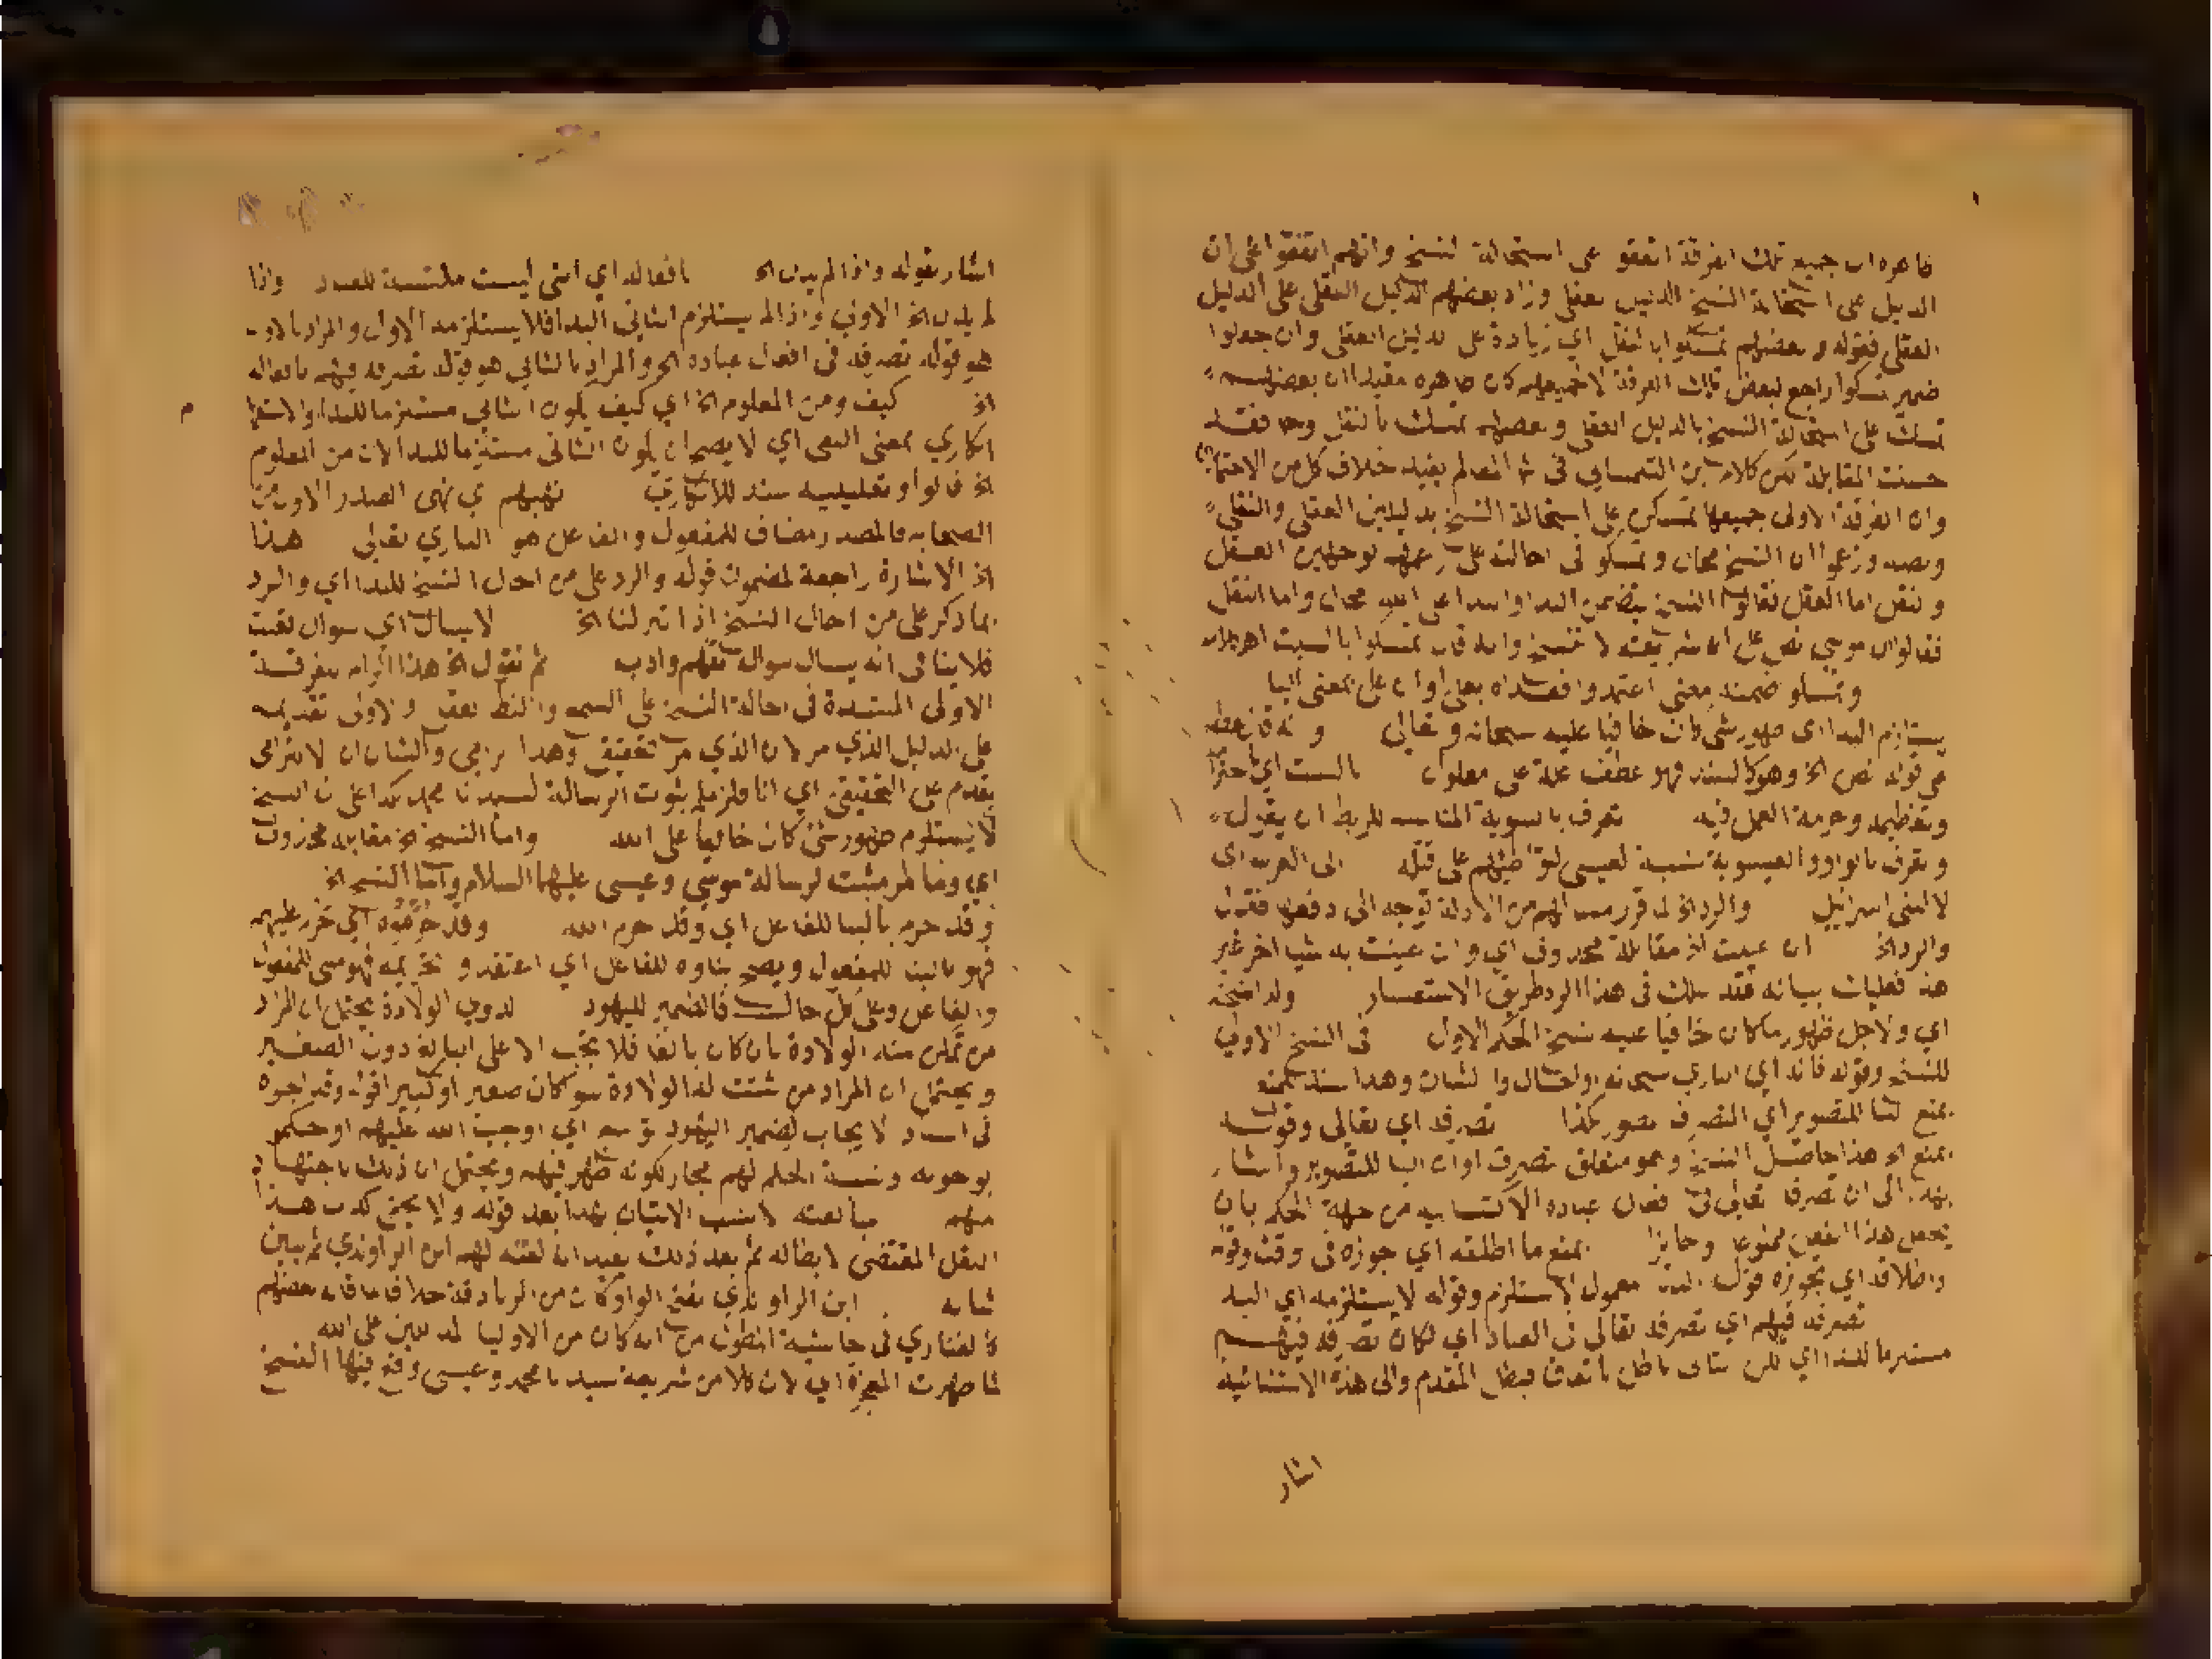 ظاهره ان جميع تلك الفرقة اتفقوا على استحالة النسخ وانهم اتفقوا على ان
الدليل على استحالة النسخ الدليل العقلي وزاد بعضهم الدليل النقلي على الدليل
العقلي فقوله وبعضهم تمسكوا بالنقل اي زيادة على الدليل العقلي وان جعلوا
ضمير تمسكوا راجع لبعض تلك الفرقة لا لجميعهم كان ظاهره مفيدا ان بعضهم
تمسك على استحالة النسخ بالدليل العقلي وبعضهم تمسك بالنقل وحـ فقد
حسنت المقابلة لكن كلام ابن التلمساني في شـ المعالم يفيد خلاف كل من الاحتمالين
وان الفرقة الاولى جميعها تمسكوا على استحالة النسخ بدليلين العقلي والنقلي
ونصه وزعموا ان النسخ محال وتمسكوا في احالته على زعمهم بوجهين العقل
والنقل اما العقل فقالوا النسخ يتضمن البدا والبدا على الله محال واما النقل
فقالوا ان موسى نص على ان شريعته لا تنسخ وانه قال تمسكوا بالسبت اهـ
وتمسكوا ضمنه معنى اعتمدوا فعداه بعلى او ان على بمعنى البا
يستلزم البدا اى ظهور شي كان خافيا عليه سبحانه وتعالى وانه قال عطف
على قوله نص الخ وهو كالسند فهو عطف علة على معلول بالسبت اي احترامه
وتعظيمه وحرمة العمل فيه تعرف بالعيسوية المناسب للربط ان يقول
وتعرف بالواو والعيسوية نسبة لعيسى لتواطئهم على قتله الى العرب اى
لا لبنى اسرائيل والرد الخ لما قرر ما لهم من الادلة توجه الى دفعها فقال
والرد الخ ان عنيت الخ مقابله محذوف اي وان عنيت به شيا اخر غير
هذا فعليك بيانه فقد سلك في هذا الرد طريق الاستفسار ولاجله نسخه
اي ولاجل ظهور ما كان خافيا عليه نسخ الحكم الاول في النسخ الاولى
للنسخ وقوله فانه اي الباري سبحانه او الحال والشان وهذا سند للمنع
يمنع لنا المتصور اي المتصرف تصور كذا تصرفه اي تعالى وقوله
يمنع الخ هذا حاصل النسخ وهو متعلق بتصرف او ان البا للتصوير واشار
بهذا الى ان تصرفه تعالى في افعال عباده الاكتسابية من جهة الحكم بان
يجعل هذا الفعل ممنوعا وجايزا يمنع ما اطلقه اي جوزه في وقت وقوله
واطلاقه اي تجويزه قوله البدا معمول لاستلزم وقوله لا يستلزمه اي البدا
تصرفه فيهم اي تصرفه تعالى في العباد اي لكان تصرفه فيهم
مستلزما للبدا اي لكن التالى باطل باتفاق فبطل المقدم والى هذه الاستثنائية
اشار
اشار بقوله واذا لم يدل الخ بافعاله اي التى ليست مكتسبة للعبد واذا
لم يدل الخ الاولى واذا لم يستلزم الثاني البدا فلا يستلزمه الاول والمراد بالاول
هو قوله تصرفه في افعال عباده الخ والمراد بالثاني هو قوله تصرفه فيهم بافعاله
الخ كيف ومن المعلوم الخ اي كيف يكون الثاني مستلزما للبدا والاستفهام
انكاري بمعنى النفى اي لا يصح ان يكون الثانى مستلزما للبدا لان من المعلوم
الخ فالواو تعليلية سند للانكاري نهيهم اي نهى الصدر الاول من
الصحابة فالمصدر مضاف للمفعول والفاعل هو الباري تعالى هذا
الخ الاشارة راجعة لمضمون قوله والرد على من احال النسخ للبدا اي والرد
بما ذكر على من احال النسخ اذا تنزلنا الخ لا يسال اي سوال تعنت
فلا ينافى انه يسال سوال تفهم وادب ثم نقول الخ هذا الزام للفرقة
الاولى المستندة في احالة النسخ على السمع والنقل والاولى تقديمه
على الدليل الذي مر لان الذي مر تحقيقي وهذا الزامى والشان ان الالزامى
يقدم على التحقيقي اي انا نلزمكم بثبوت الرسالة لسيدنا محمد بدا على ان النسخ
لا يستلزم ظهور شي كان خافيا على الله واما النسخ الخ مقابله محذوف
اي وما مر مثبت لرسالة موسى وعيسى عليهما السلام واما النسخ الخ
وقد حرم بالبنا للفاعل اي وقد حرم الله وقد حرموه اي تحريمه
فهو بالبنا للمفعول ويصح بناوه للفاعل اي اعتقدوا تحريمه فهو مبنى للمفعول
والفاعل وعلى كل حال فالضمير لليهود لدون الولادة يحتمل ان المراد
من تمكن منه الولادة بان كان بالغا فلا يجب الا على البالغ دون الصغير
ويحتمل ان المراد من ثبتت له الولادة سوا كان صغيرا او كبيرا قوله وقد اوجبوه
في اسناد الايجاب لضمير اليهود توسع اي اوجب الله عليهم او حكموا
بوجوبه ونسبة الحكم لهم مجاز لكونه ظهر فيهم ويحتمل ان ذلك باجتهاد
منهم مبالغته لا يناسب الاتيان بهذا بعد قوله ولا يخفى كذب هذا
النقل المقتضى لابطاله ثم بعد ذلك يفيد انه لقنه لهم ابن الراوندي ثم يبين
شانه ابن الراوندي بفتح الواو كان من الزنادقة خلافا لما قاله بعضهم
كالفناري في حاشية المطول من انه كان من الاوليا المدللين على الله
لما ظهرت المعجزة اي لان كلا من شريعة سيدنا محمد وعيسى وقع فيها النسخ